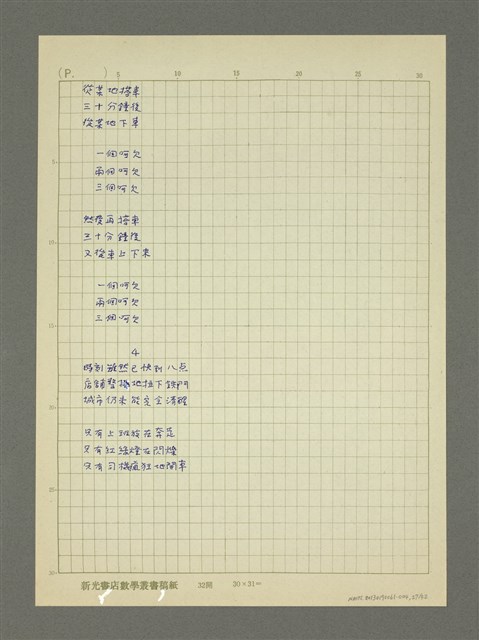 (P.      )
5 10 15 20 25 30
從某地搭車
三十分鐘後
從某地下車
一個呵欠
兩個呵欠
三個呵欠
然後再搭車
三十分鐘後
又從車上下來
一個呵欠
兩個呵欠
三個呵欠
4
時刻雖然已快到八点
店鋪整橫地拉下鉄門
城市仍未能完全清醒
只有上班族在奔走
只有紅綠燈在閃爍
只有司機瘋狂地開車
5
10
15
20
25
30
新光書店數學叢書稿紙 32開 30×31=